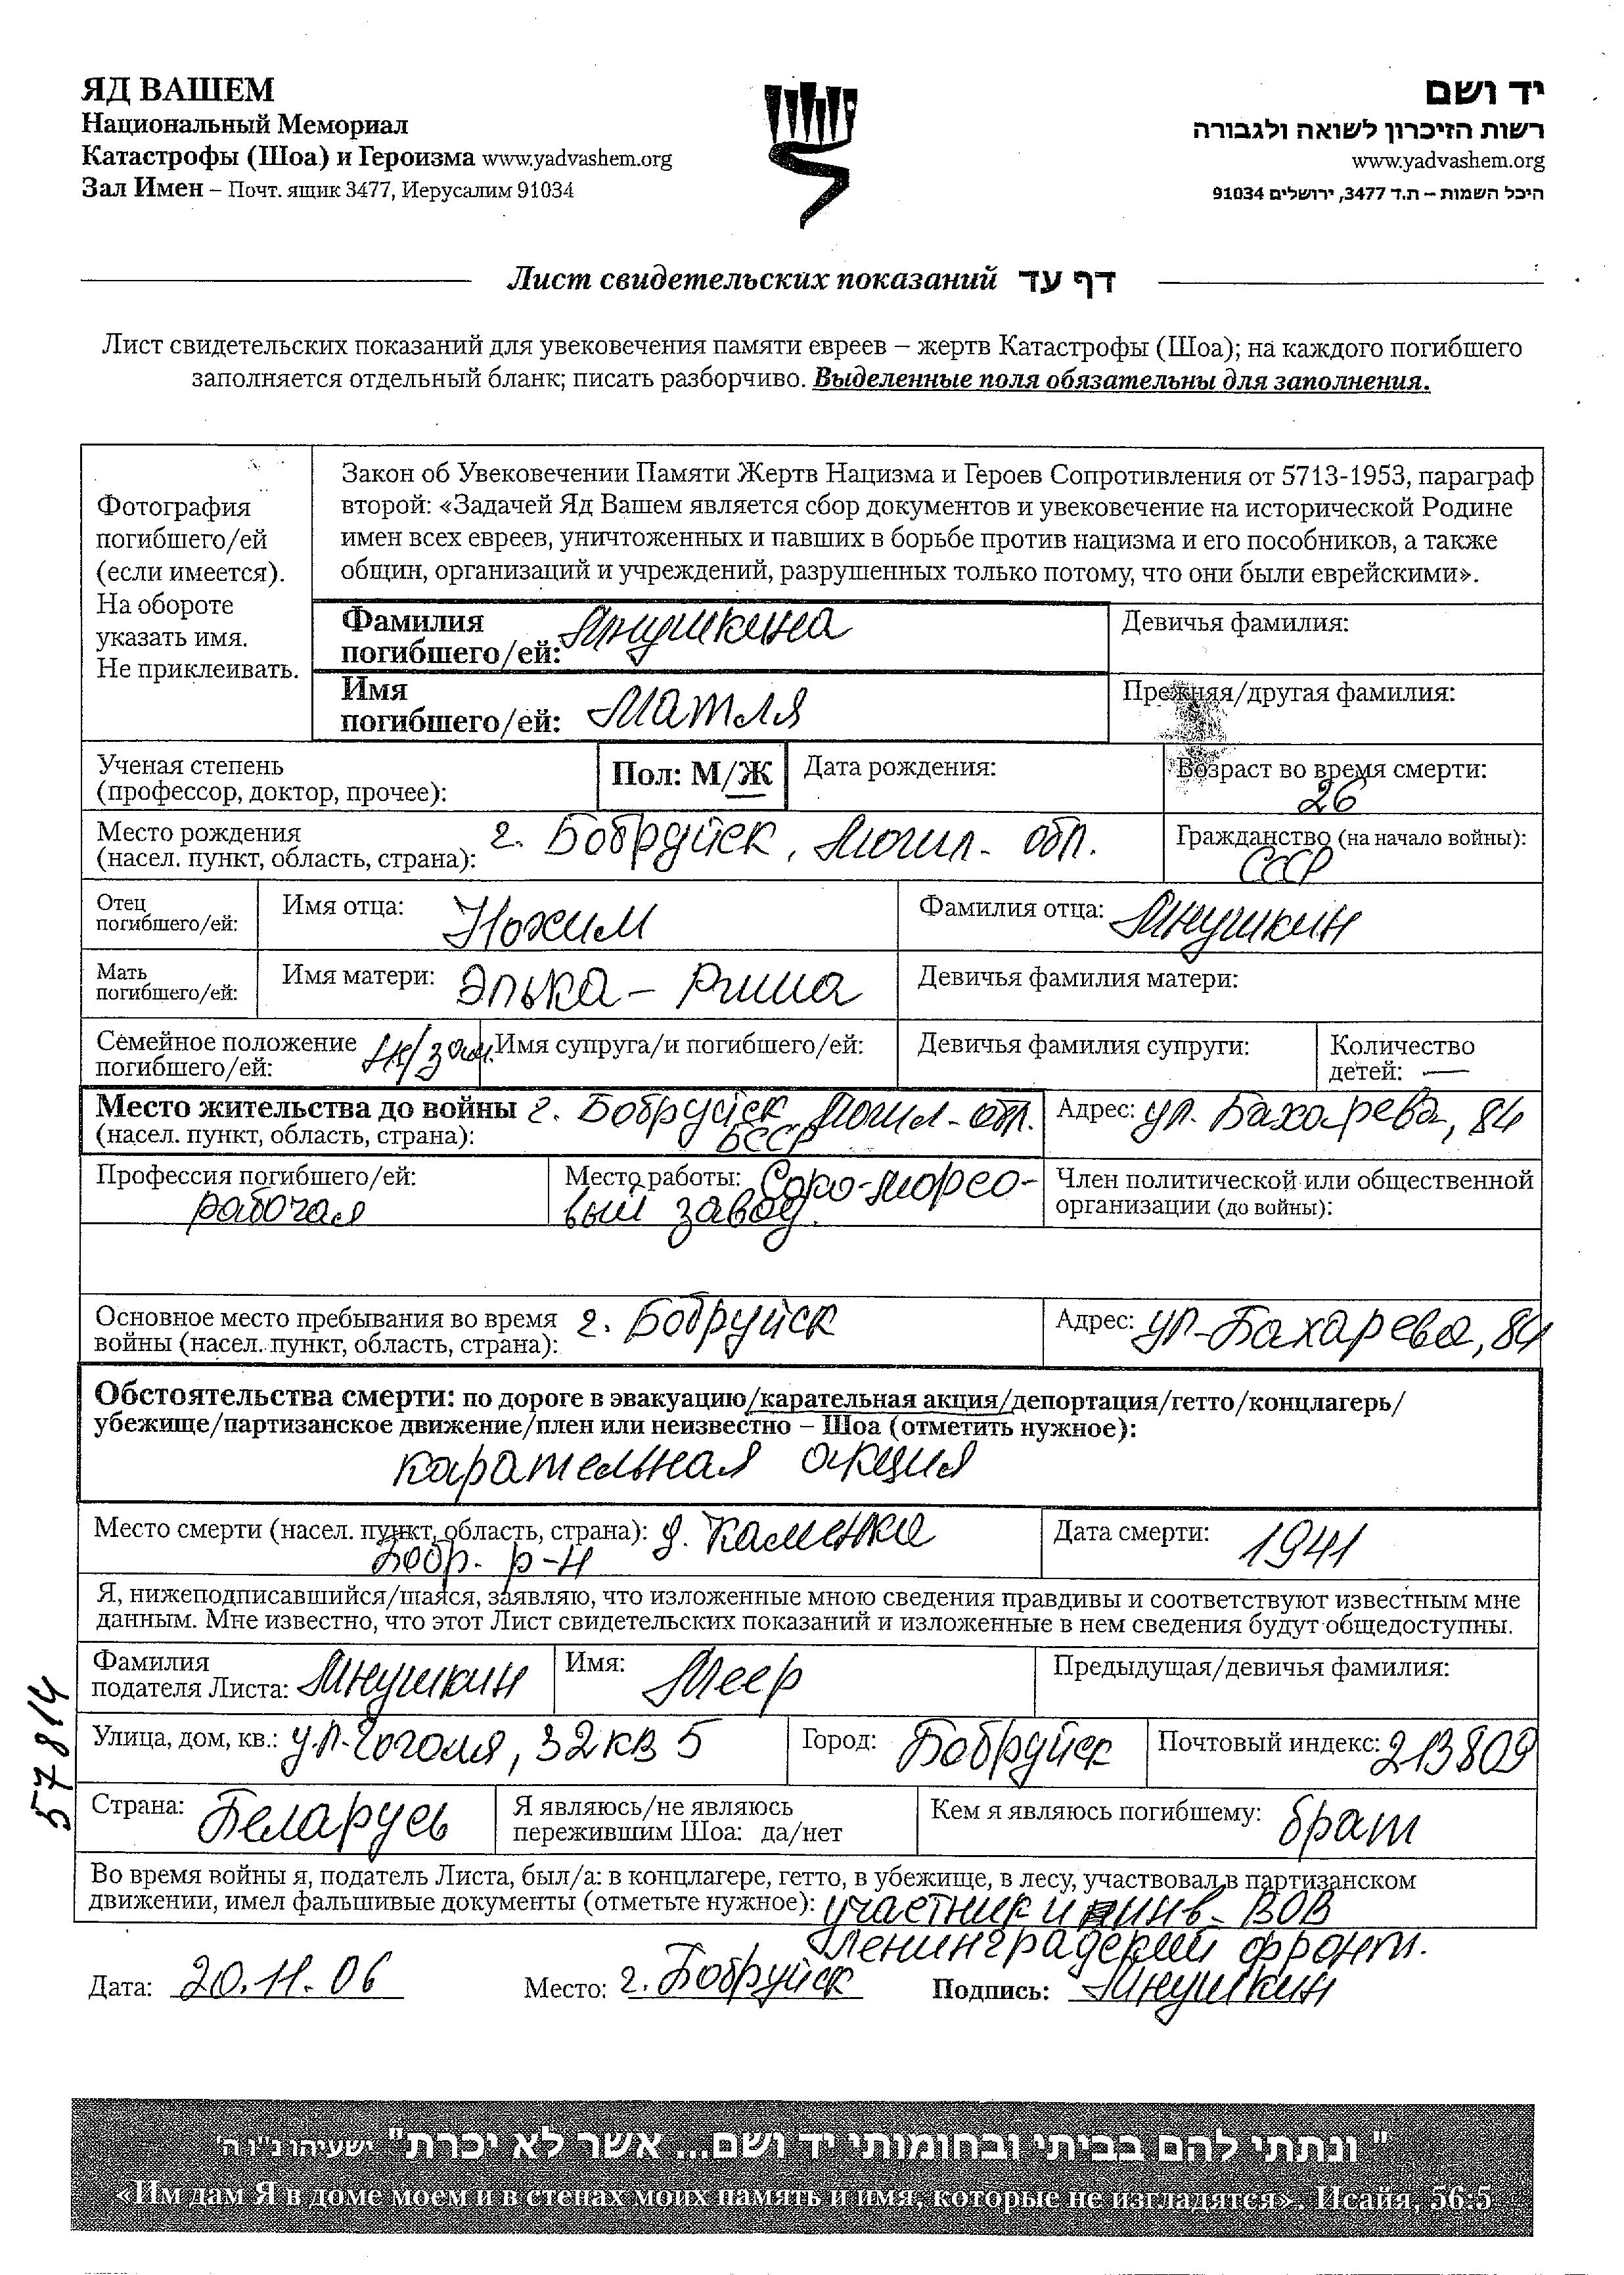 ЯД ВАШЕМ
Национальный Мемориал
Катастрофы (Шоа) и Героизма www.yadvashem.org
Зал Имен – Почт. ящик 3477, Иерусалим 91034
יד ושם
רשות הזיכרון לשואה ולגבורה
www.yadvashem.org
היכל השמות – ת.ד 3477, ירושלים 91034
Лист свидетельских показаний דף עד
Лист свидетельских показаний для увековечения памяти евреев – жертв Катастрофы (Шоа); на каждого погибшего
заполняется отдельный бланк; писать разборчиво. Выделенные поля обязательны для заполнения.
Фотография
погибшего/ей
(если имеется).
На обороте
указать имя.
Не приклеивать.
Закон об Увековечении Памяти Жертв Нацизма и Героев Сопротивления от 5713-1953, параграф
второй: «Задачей Яд Вашем является сбор документов и увековечение на исторической Родине
имен всех евреев, уничтоженных и павших в борьбе против нацизма и его пособников, а также
общин, организаций и учреждений, разрушенных только потому, что они были еврейскими».
Фамилия
погибшего/ей: Мнушкина
Девичья фамилия:
Имя
погибшего/ей: Матля
Прежняя/другая фамилия:
Ученая степень
(профессор, доктор, прочее):
Пол: М/Ж
Дата рождения:
Возраст во время смерти:
26
Место рождения
(насел. пункт, область, страна): г. Бобруйск, Могил- обл.
Гражданство (на начало войны):
СССР
Отец
погибшего/ей:
Имя отца: Нохим
Фамилия отца: Мнушкин
Мать
погибшего/ей:
Имя матери: Элька-
Девичья фамилия матери:
Семейное положение
погибшего/ей: н/зам.
Имя супруга/и погибшего/ей:
Девичья фамилия супруги:
Количество
детей: —
Место жительства до войны г. Бобруйск Могил-обл.
(насел. пункт, область, страна): БССР
Адрес: ул. Бахарева, 84
Профессия погибшего/ей:
рабочая
Место работы:
вый завод.
Член политической или общественной
организации (до войны):
Основное место пребывания во время
войны (насел. пункт, область, страна): г. Бобруйск
Адрес: ул-Бахарева, 84
Обстоятельства смерти: по дороге в эвакуацию/карательная акция/депортация/гетто/концлагерь/
убежище/партизанское движение/плен или неизвестно – Шоа (отметить нужное):
карательная акция
Место смерти (насел. пункт, область, страна): д. Каменка
Бобр. р-н
Дата смерти: 1941
Я, нижеподписавшийся/шаяся, заявляю, что изложенные мною сведения правдивы и соответствуют известным мне
данным. Мне известно, что этот Лист свидетельских показаний и изложенные в нем сведения будут общедоступны.
Фамилия
подателя Листа: Мнушкин
Имя: Меер
Предыдущая/девичья фамилия:
Улица, дом, кв.: ул-Гоголя, 32 кв 5
Город: Бобруйск
Почтовый индекс: 213809
Страна: Беларусь
Я являюсь/не являюсь
пережившим Шоа: да/нет
Кем я являюсь погибшему: брат
Во время войны я, податель Листа, был/а: в концлагере, гетто, в убежище, в лесу, участвовал в партизанском
движении, имел фальшивые документы (отметьте нужное): участник и инв- ВОВ
Ленинградский фронт.
Дата: 20.11.06
Место: г. Бобруйск
Подпись: Мнушкин
57814
" ונתתי להם בביתי ובחומותי יד ושם... אשר לא יכרת" ישעיהו נ"ו ה'
«Им дам Я в доме моем и в стенах моих память и имя, которые не изгладятся». Исайя, 56:5